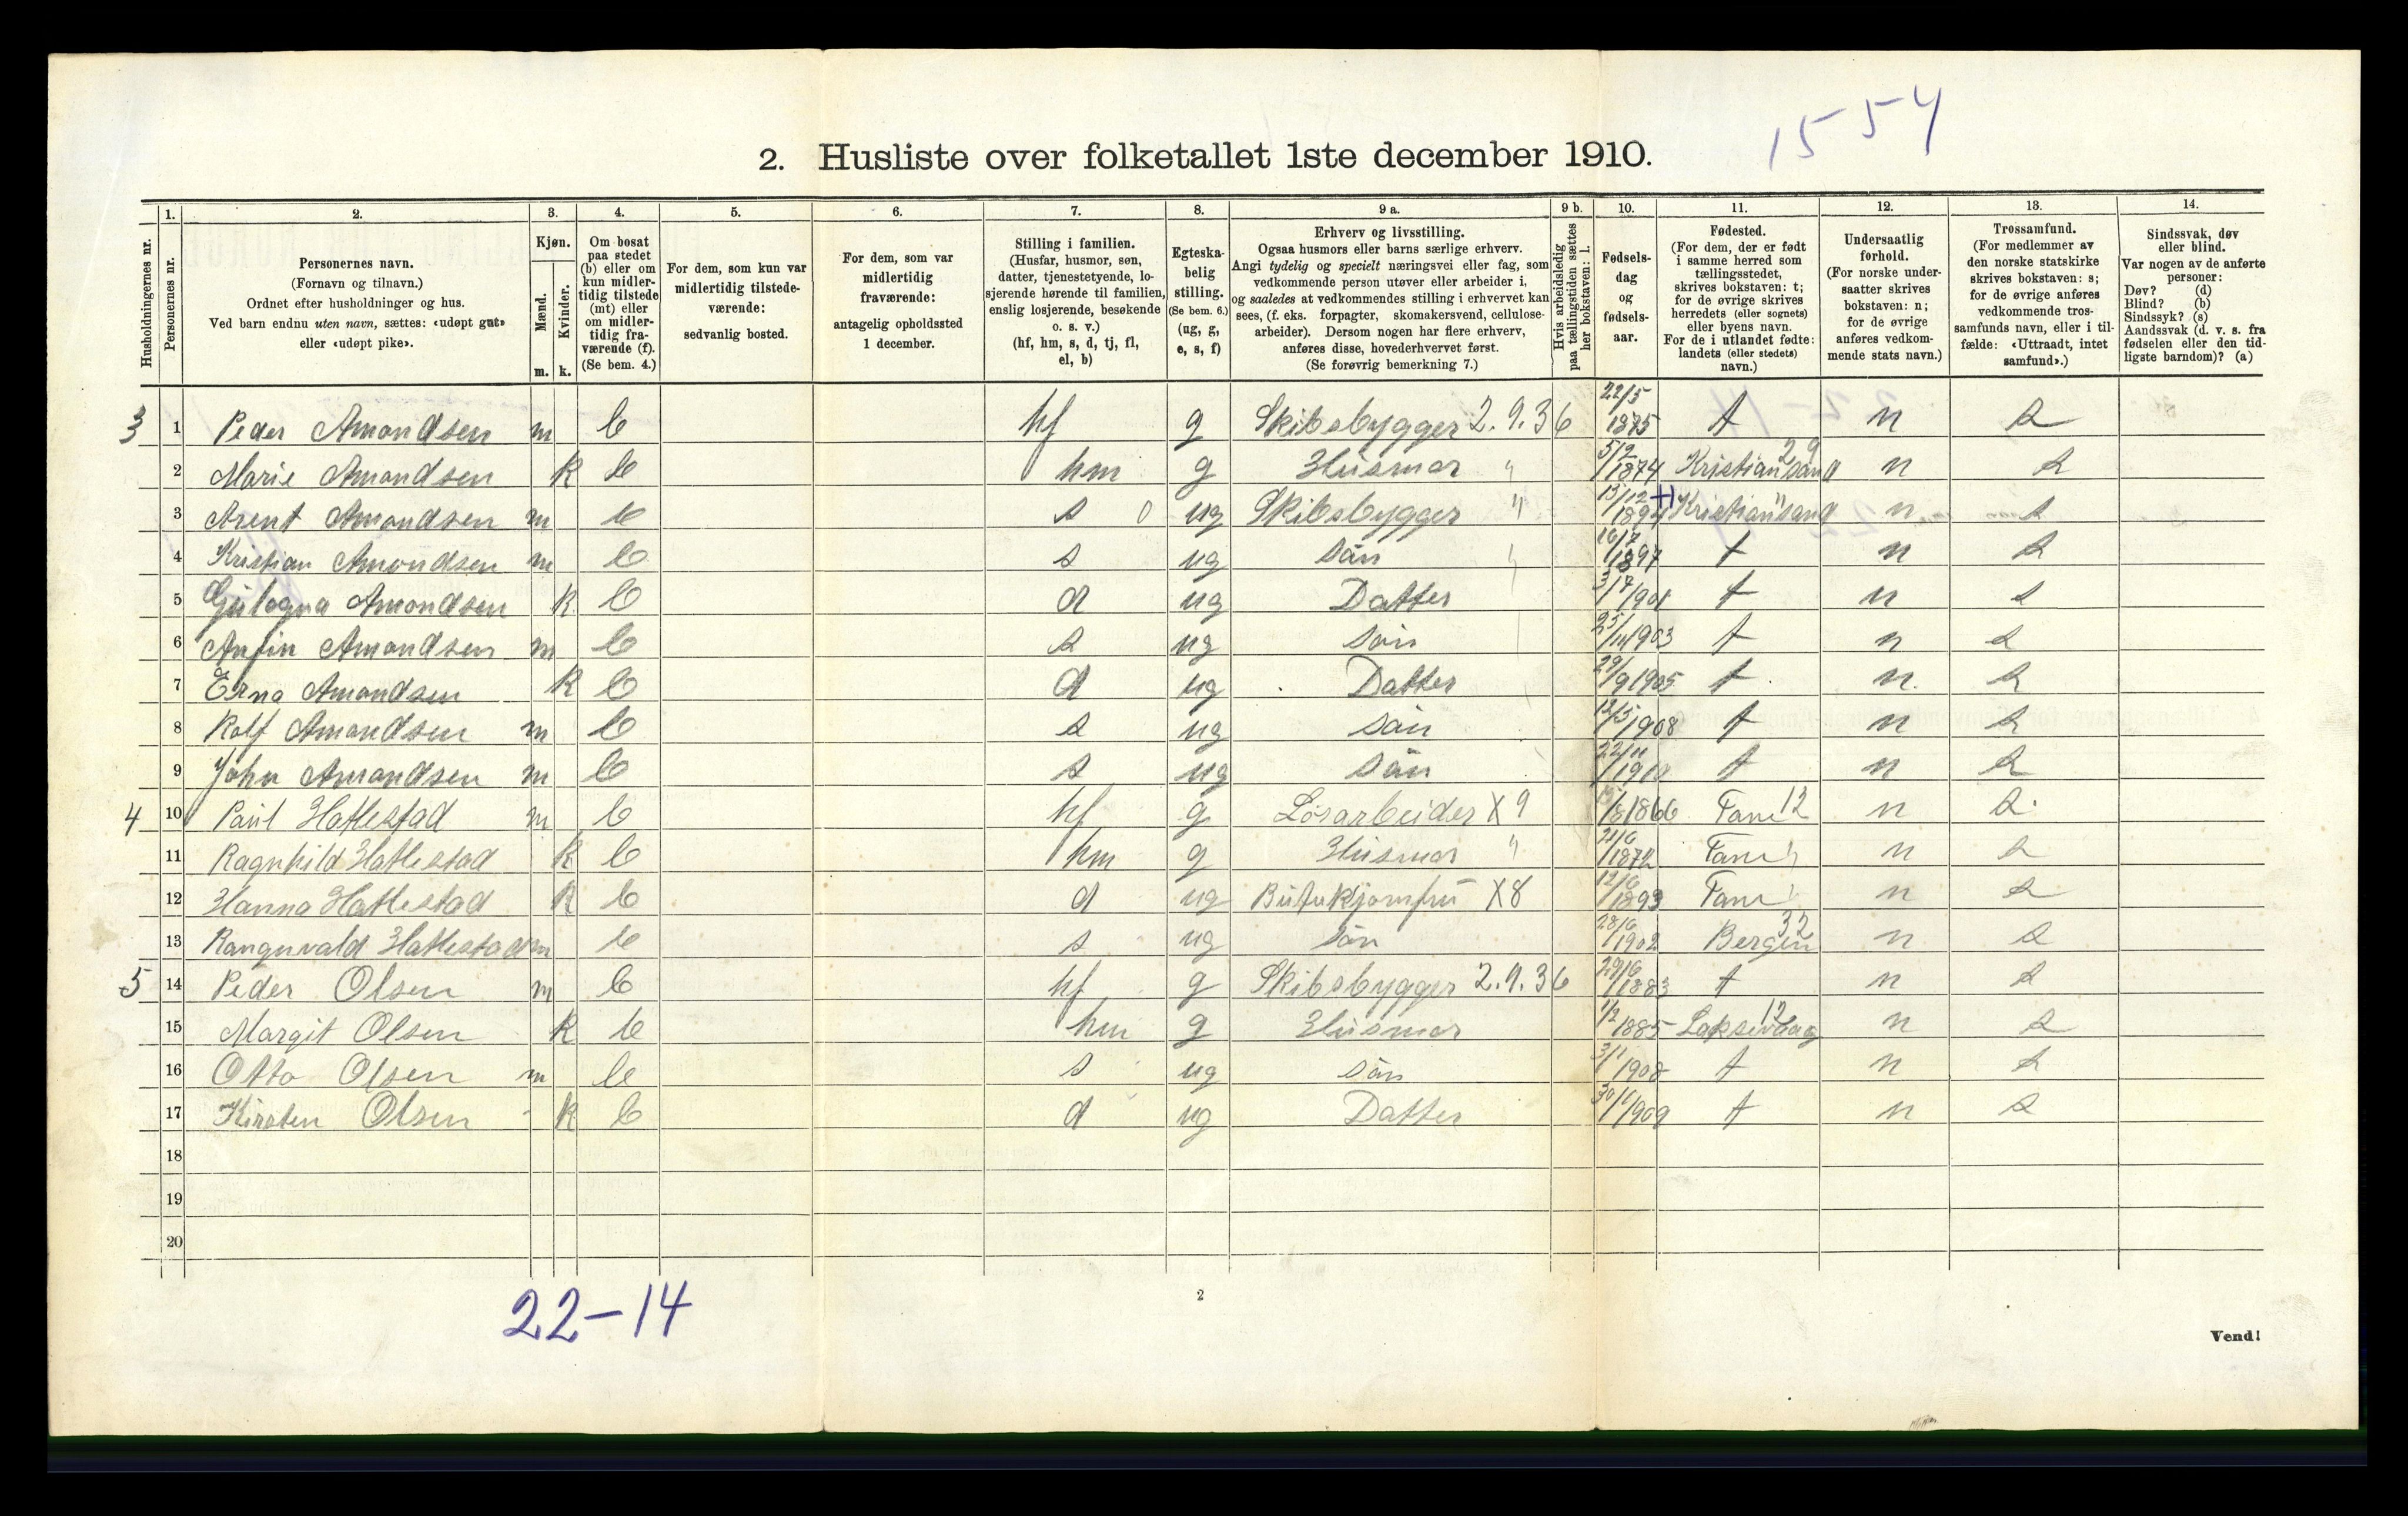 1554
2. Husliste over folketallet 1ste december 1910.
Husholdningernes nr.
1. Personernes nr.
2. Personernes navn.
(Fornavn og tilnavn.)
Ordnet efter husholdninger og hus.
Ved barn endnu uten navn, sættes: «udøpt gut»
eller «udøpt pike».
3. Kjøn.
Mænd. m.
Kvinder. k.
4. Om bosat
paa stedet
(b) eller om
kun midler-
tidig tilstede
(mt) eller
om midler-
tidig fra-
værende (f).
(Se bem. 4.)
5. For dem, som kun var
midlertidig tilstede-
værende:
sedvanlig bosted.
6. For dem, som var
midlertidig
fraværende:
antagelig opholdssted
1 december.
7. Stilling i familien.
(Husfar, husmor, søn,
datter, tjenestetyende, lo-
sjerende hørende til familien,
enslig losjerende, besøkende
o. s. v.)
(hf, hm, s, d, tj, fl,
el, b)
8. Egteska-
belig
stilling.
(Se bem. 6.)
(ug, g,
e, s, f)
9 a. Erhverv og livsstilling.
Ogsaa husmors eller barns særlige erhverv.
Angi tydelig og specielt næringsvei eller fag, som
vedkommende person utøver eller arbeider i,
og saaledes at vedkommendes stilling i erhvervet kan
sees, (f. eks. forpagter, skomakersvend, cellulose-
arbeider). Dersom nogen har flere erhverv,
anføres disse, hovederhvervet først.
(Se forøvrig bemerkning 7.)
9 b. Hvis arbeidsledig
paa tællingstiden sættes
her bokstaven: l.
10. Fødsels-
dag
og
fødsels-
aar.
11. Fødested.
(For dem, der er født
i samme herred som
tællingsstedet,
skrives bokstaven: t;
for de øvrige skrives
herredets (eller sognets)
eller byens navn.
For de i utlandet fødte:
landets (eller stedets)
navn.)
12. Undersaatlig
forhold.
(For norske under-
saatter skrives
bokstaven: n;
for de øvrige
anføres vedkom-
mende stats navn.)
13. Trossamfund.
(For medlemmer av
den norske statskirke
skrives bokstaven: s;
for de øvrige anføres
vedkommende tros-
samfunds navn, eller i til-
fælde: «Uttraadt, intet
samfund».)
14. Sindssvak, døv
eller blind.
Var nogen av de anførte
personer:
Døv? (d)
Blind? (b)
Sindssyk? (s)
Aandssvak (d. v. s. fra
fødselen eller den tid-
ligste barndom)? (a)
3 1 Peder Amondsen m b hf g Skibsbygger 2.9.36 22/5 1875 t n s
2 Marie Amondsen k b hm g Husmor " 5/2 1874 Kristiansand 29 n s
3 Arent Amondsen m b s 0 ug Skibsbygger " 13/12 1894 Kristiansand " n s
4 Kristian Amondsen m b s ug Sön 16/7 1897 t n s
5 Amondsen k b d ug Datter 3/7 1901 t n s
6 Anfin Amondsen m b s ug Sön 25/11 1903 t n s
7 Erna Amondsen k b d ug Datter 29/9 1905 t n s
8 Rolf Amondsen m b s ug Sön 12/5 1908 t n s
9 John Amondsen m b s ug Sön 22/11 1910 t n s
4 10 Paul Hatlestad m b hf g Løsarbeider X9 1866 Fane 12 n s
11 Ragnhild Hatlestad k b hm g Husmor " 21/6 1872 Fane " n s
12 Hanna Hatlestad k b d ug Butikjomfru X8 12/6 1893 Fane " n s
13 Rangnvald Hatlestad m b s ug Sön 28/6 1902 Bergen 32 n s
5 14 Peder Olsen m b hf g Skibsbygger 2.9.36 29/6 1883 t n s
15 Margit Olsen k b hm g Husmor 1/2 1885 Laksevaag 12 n s
16 Otto Olsen m b s ug Sön 3/1 1908 t n s
17 Kirsten Olsen k b d ug Datter 1909 t n s
18
19
20
22-14
2
Vend!